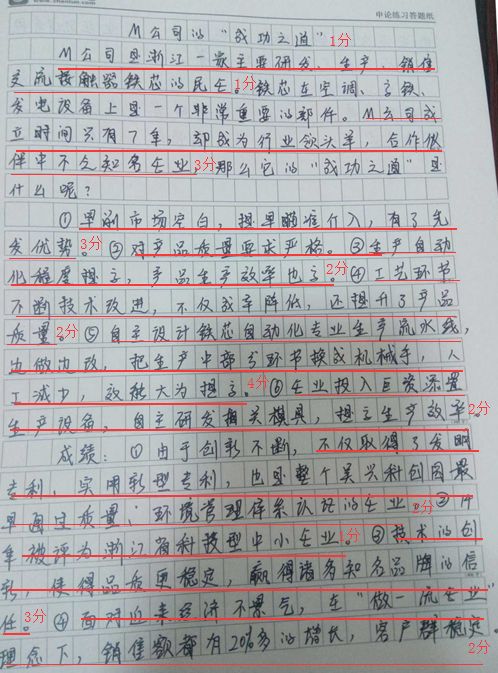 www.zhantun.com
申论练习答题纸
M公司的“成功之道” 1分
M公司是浙江一家主要研发、生产、销售
交流接触器铁芯的民企。1分铁芯在空调、高铁、
发电设备上是一个非常重要的部件。M公司成
立时间只有7年，却成为行业领头羊，合作伙
伴中不乏知名企业，3分那么它的“成功之道”是
什么呢？
①早前市场空白，提早瞄准介入，有了先
发优势。3分②对产品质量要求严格。③生产自动
化程度提高，产品生产效率也高。2分④工艺环节
不断技术改进，不仅成本降低，还提升了产品
质量。2分⑤自主设计铁芯自动化专业生产流水线，
边做边改，把生产中部分环节换成机械手，人
工减少，效能大为提高。4分⑥企业投入巨资添置
生产设备，自主研发相关模具，提高生产效率。2分
成绩：①由于创新不断，不仅取得了发明
专利，实用新型专利，也是整个吴兴科创园最
早通过质量、环境管理体系认证的企业。2分②14
年被评为浙江省科技型中小企业。1分③技术的创
新，使得品质更稳定，赢得诸多知名品牌的信
任。3分④面对近来经济不景气，在“做一流企业”
理念下，销售额都有20%多的增长，客户群稳定。
2分